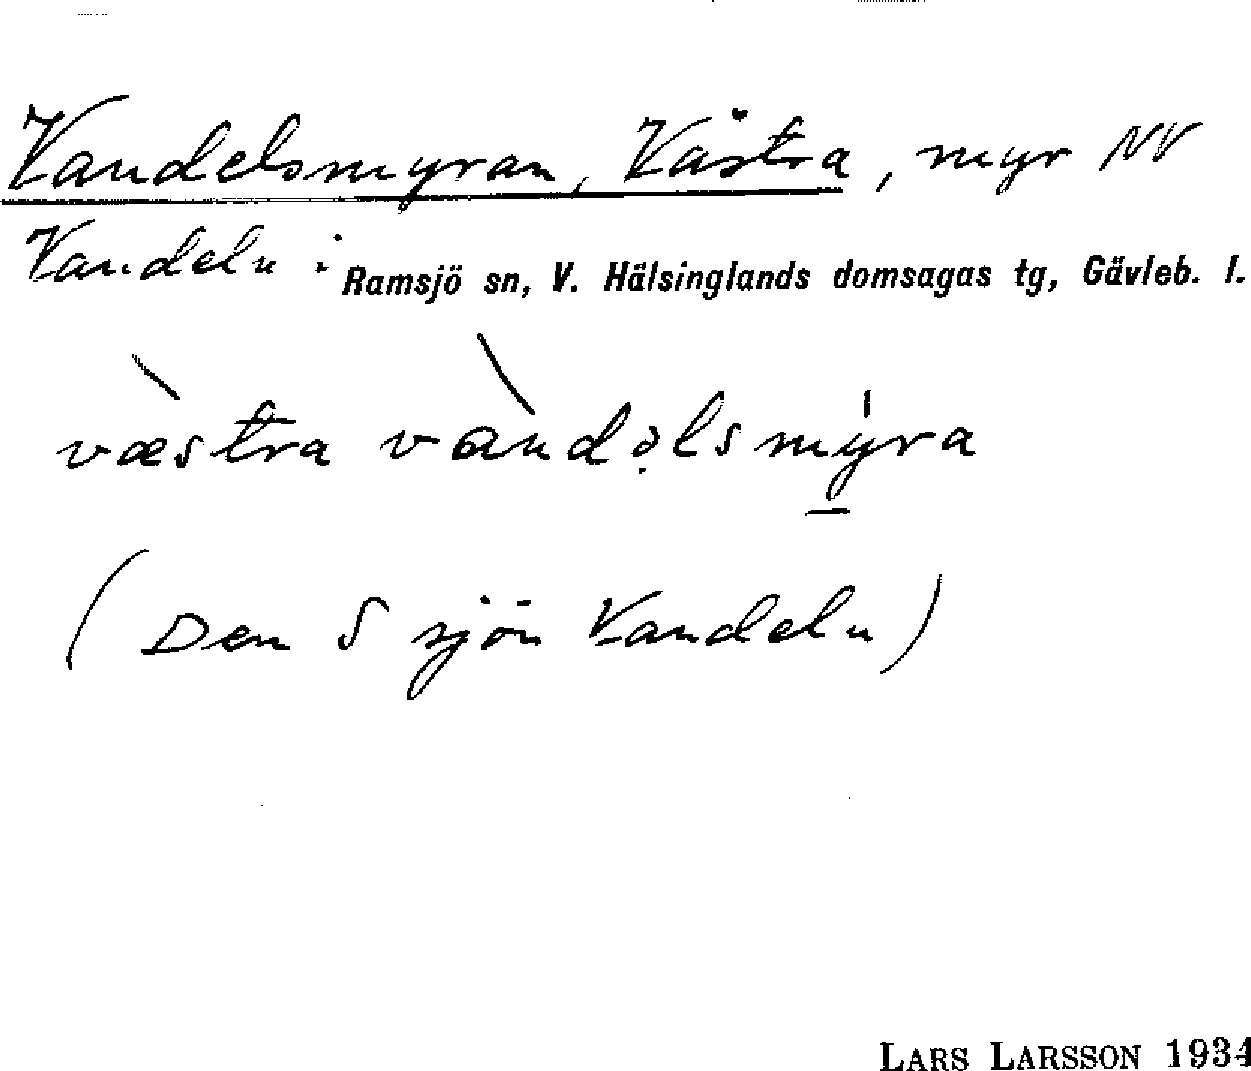 Vandelsmyran, Västra, myr NV
Vandeln i Ramsjö sn, V. Hälsinglands domsagas tg, Gävleb. l.
væstra vandəlsmýra
(Den S sjön Vandeln)
LARS LARSSON 1934